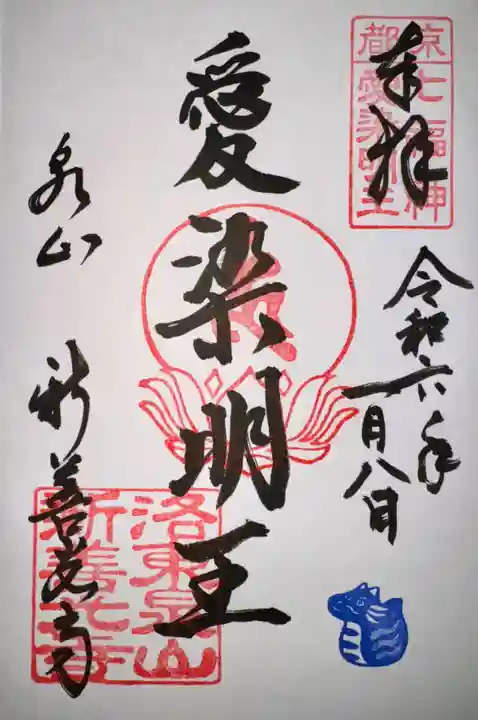 奉拝
京七福神
都愛染明王
令和六年
一月八日
愛染明王
泉山 新善光寺
洛東泉山
新善光寺